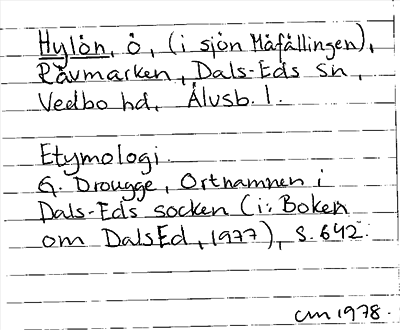 Hylön, ö, (i sjön Måfållingen),
Råvmarken, Dals-Eds sn,
Vedbo hd, Älvsb. l.
Etymologi.
G. Drougge, Ortnamnen i
Dals-Eds socken (i: Boken
om DalsEd, 1977), s. 642.
cm 1978.